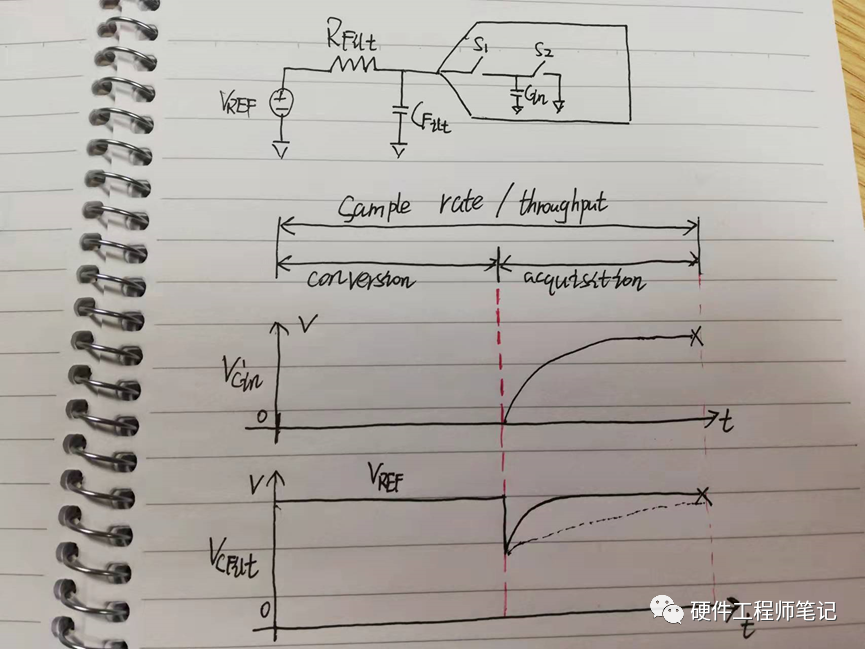 RFilt
S1
S2
VREF
CFilt
Cin
Sample rate / throughput
conversion
acquisition
V
VCin
0
t
V
VREF
VCFilt
0
t
硬件工程师笔记